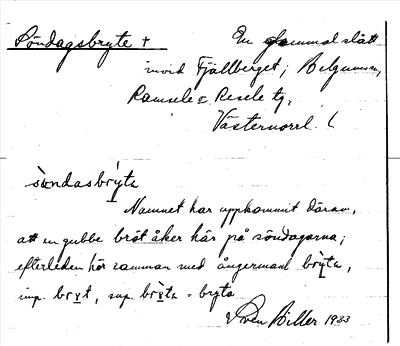 Söndagsbryte + En gammal slått
invid Fjällberget, Belgumsn,
Ramsele o. Resele tg,
Västernorrl. l
söndasbrýta
Namnet har uppkommit därav,
att en gubbe bröt åker här på söndagarna;
efterleden hör samman med ångermanl. brýta,
imp. brvt, sup. brýta = bryta
Sven Biller 1933